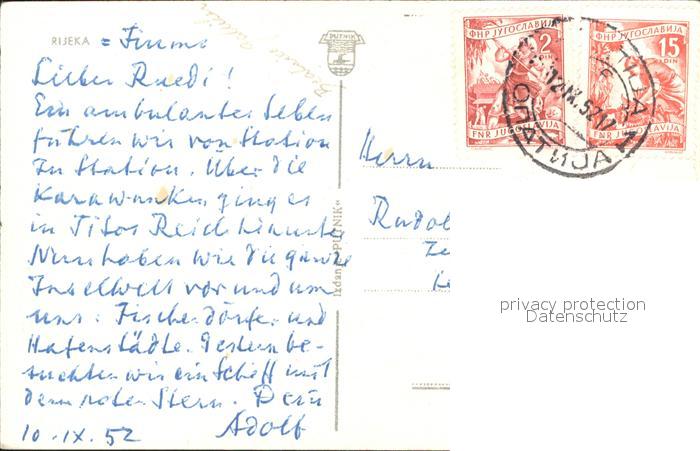 RIJEKA = Fiume
Lieber Ruedi!
Ein ambulantes Leben
führen wir von Station
zu Station. Über die
Karawanken ging es
in Titos Reich hinunter
Nun haben wir die ganze
Inselwelt vor und um
uns: Fischerdörfer und
Hafenstädte. Gestern be-
suchten wir ein Schiff mit
dem roten Stern. Dein
10.IX.52 Adolf
PUTNIK
Izdanje „PUTNIK"
Herrn
Rudol
ФНР ЈУГОСЛАВИЈА
2
FNR JUGOSLAVIJA
ФНР ЈУГОСЛАВИЈА
15
DIN
FNR JUGOSLAVIJA
12.IX.52.17
ОПАТИЈА
OPATIJA
privacy protection
Datenschutz